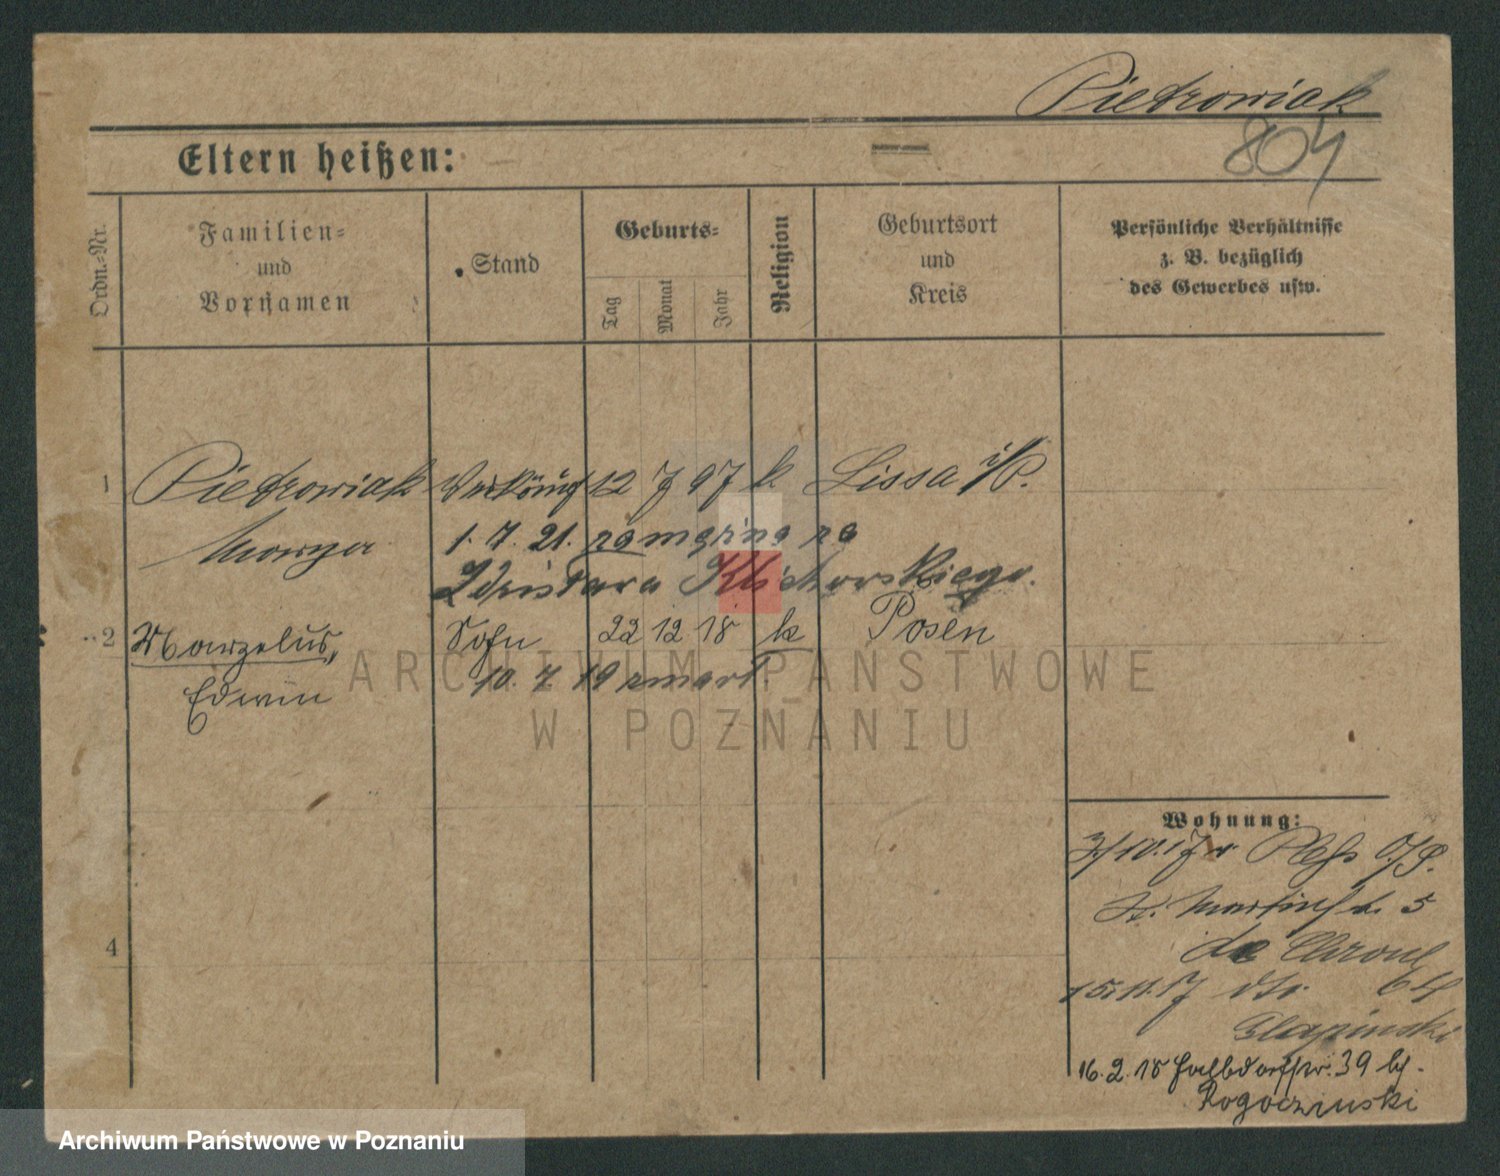 Pietrowiak
804
Eltern heißen: —
Ordn.-Nr.
Familien- und Vornamen
Stand
Geburts-
Tag
Monat
Jahr
Religion
Geburtsort und Kreis
Persönliche Verhältnisse z. B. bezüglich des Gewerbes usw.
1 Pietrowiak Verkäuf 12 7 97 k. Lissa i/P.
Marya 1. 7. 21. zamężna za
2 Marzelus, Sohn 22 12 18 k Posen
Edwin 10. 7. 19 zmarł
4
Wohnung:
3/10.17 v. Pleß O/S.
St. Martinstr. 5
15.11.17 dto. 64
Glapinski
16.2.18 Halbdorfstr. 39 b/
Rogoczinski
ARCHIWUM PAŃSTWOWE
W POZNANIU
Archiwum Państwowe w Poznaniu